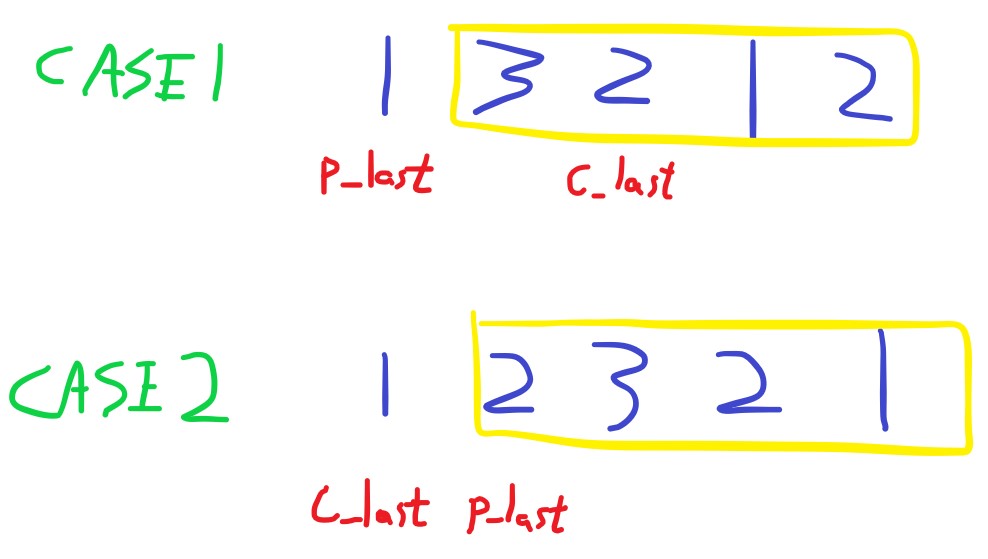 CASE1 1 3 2 1 2
P_last C_last
CASE2 1 2 3 2 1
C_last P_last